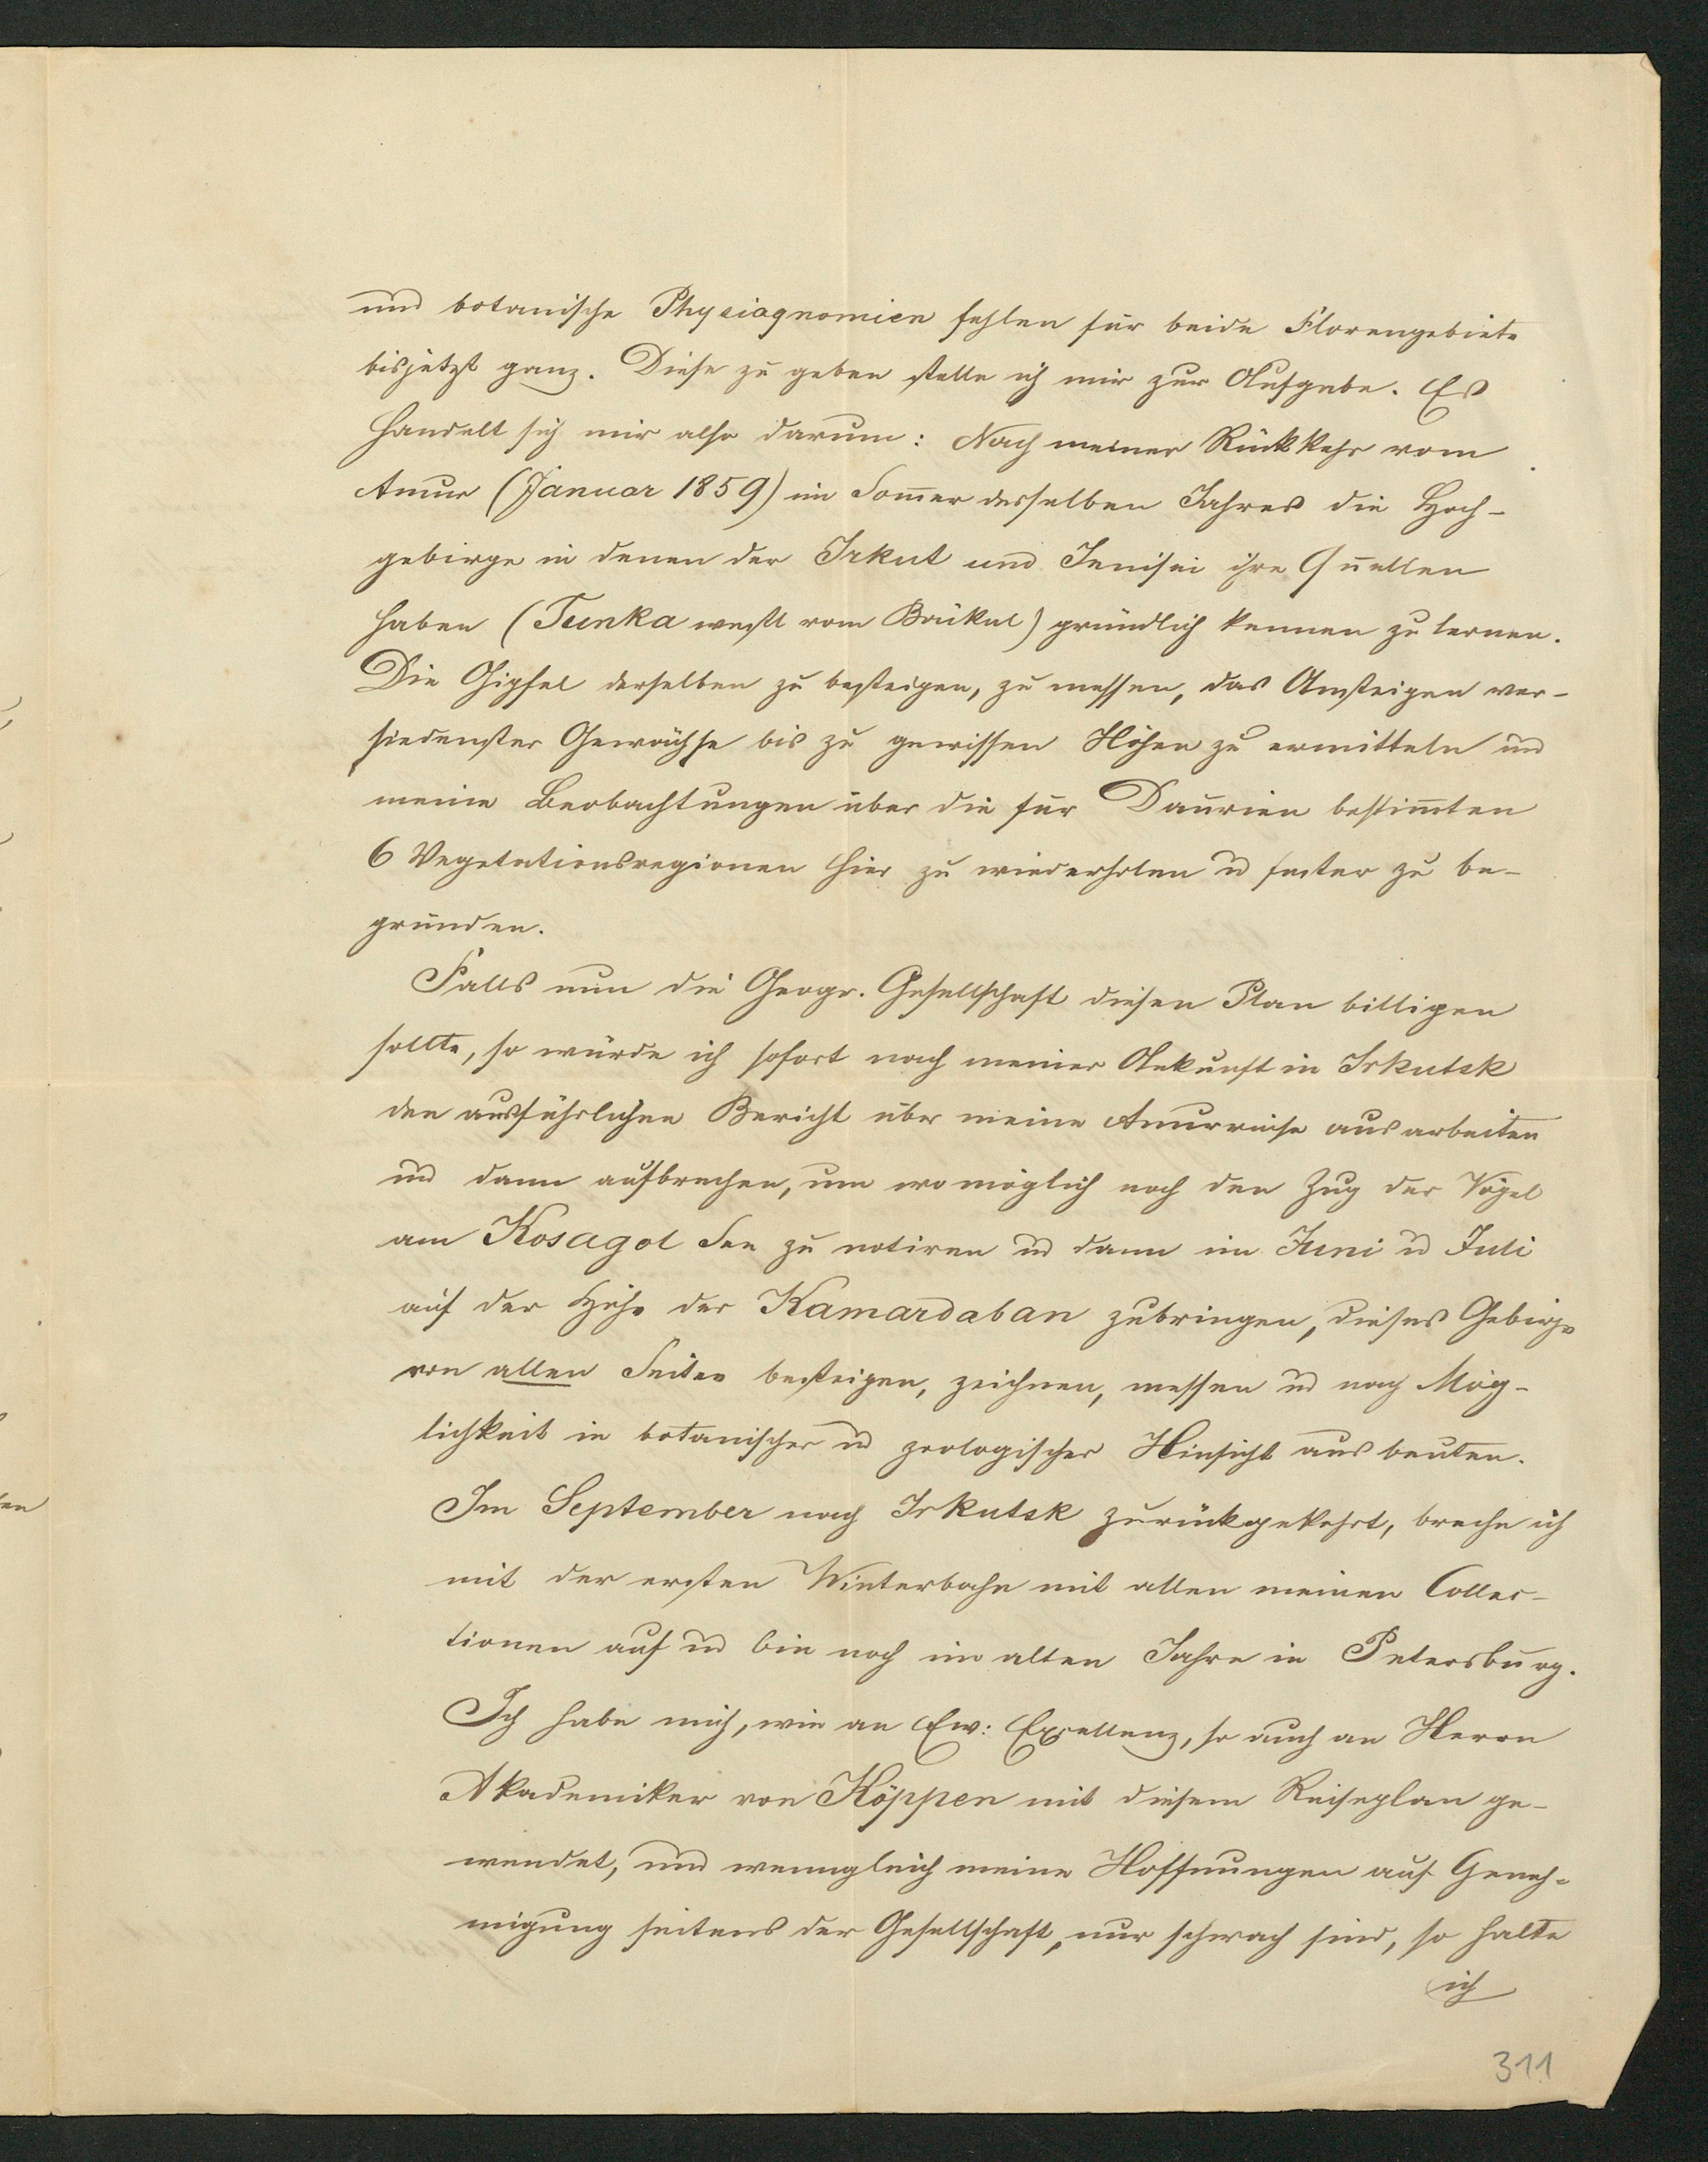 und botanische Physiognomien fehlen für beide Florengebiete
bisjetzt ganz. Diese zu geben stelle ich mir zur Aufgabe. Es
handelt sich mir also darum: Nach meiner Rückkehr vom
Amur (Januar 1859) im Som̅er desselben Jahres die Hoch-
gebirge in denen der Irkut und Jenisei ihre Quellen
haben (Tunka westl vom Baikal) gründlich kennen zu lernen.
Die Gipfel derselben zu besteigen, zu messen, das Ansteigen ver-
schiedenster Gewächse bis zu gewissen Höhen zu ermitteln und
meine Beobachtungen über die für Daurien bestim̅ten
6 Vegetationsregionen hier zu wiederholen u fester zu be-
gründen.
Falls nun die Geogr. Gesellschaft diesen Plan billigen
sollte, so würde ich sofort nach meiner Ankunft in Irkutsk
den ausführlichen Bericht über meine Amurreise ausarbeiten
und dann aufbrechen, um wo möglich noch den Zug der Vögel
am Kosagol See zu notiren u dann im Juni u Juli
auf der Höhe des Kamardaban zubringen, dieses Gebirge
von allen Seiten besteigen, zeichnen, messen u nach Mög-
lichkeit in botanischer u zoologischer Hinsicht ausbeuten.
Im September nach Irkutsk zurückgekehrt, breche ich
mit der ersten Winterbahn mit allen meinen Collec-
tionen auf u bin noch im alten Jahre in Petersburg.
Ich habe mich, wie an Ew: Excellenz, so auch an Herrn
Akademiker von Köppen mit diesem Reiseplan ge-
wendet, und wenngleich meine Hoffnungen auf Geneh-
migung seitens der Gesellschaft, nur schwach sind, so halte
ich
311